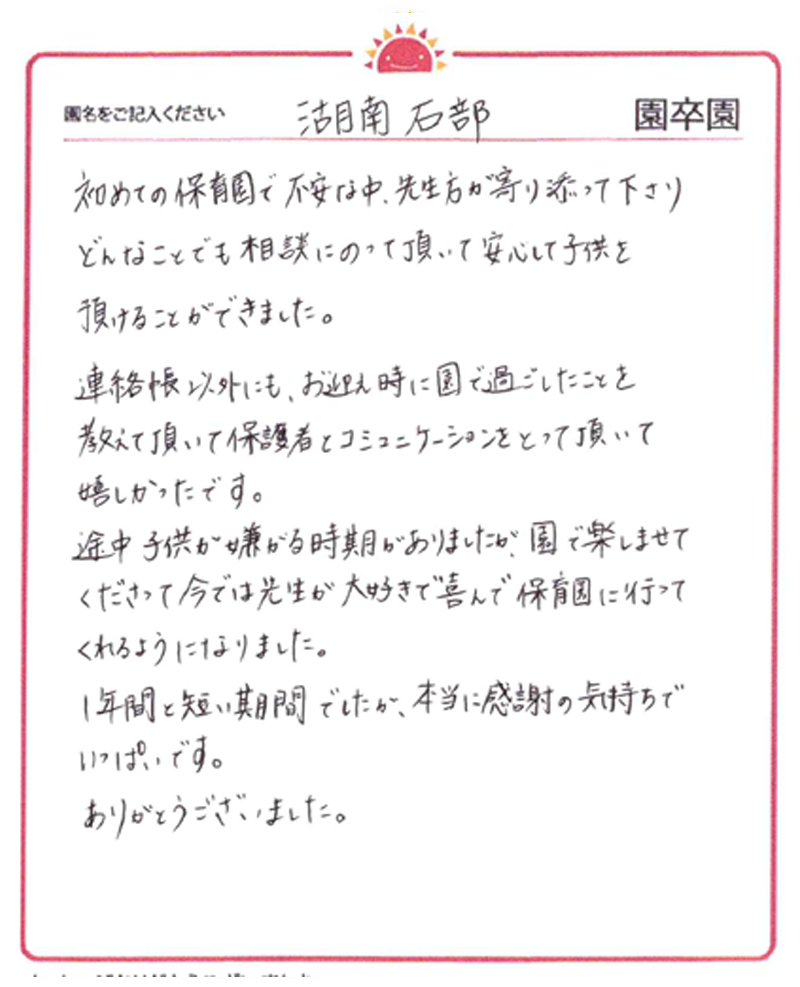 園名をご記入ください 湖南 石部 園卒園
初めての保育園で不安な中、先生方が寄り添って下さり
どんなことでも相談にのって頂いて安心して子供を
預けることができました。
連絡帳以外にも、お迎え時に園で過ごしたことを
教えて頂いて保護者とコミュニケーションをとって頂いて
嬉しかったです。
途中子供が嫌がる時期がありましたが、園で楽しませて
くださって今では先生が大好きで喜んで保育園に行って
くれるようになりました。
1年間と短い期間でしたが、本当に感謝の気持ちで
いっぱいです。
ありがとうございました。